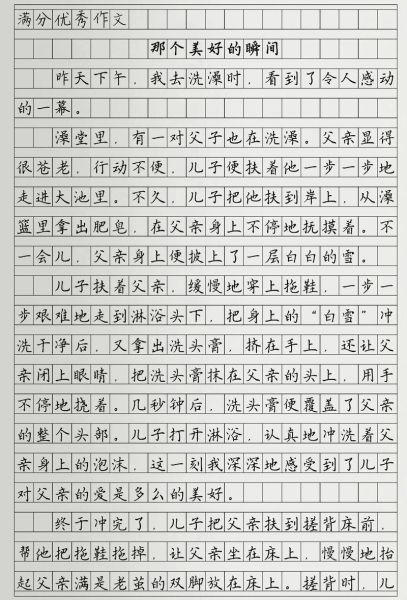 满分优秀作文
那个美好的瞬间
昨天下午，我去洗澡时，看到了令人感动
的一幕。
澡堂里，有一对父子也在洗澡。父亲显得
很苍老，行动不便，儿子便扶着他一步一步地
走进大池里。不久，儿子把他扶到岸上，从澡
篮里拿出肥皂，在父亲身上不停地抚摸着。不
一会儿，父亲身上便披上了一层白白的雪。
儿子扶着父亲，缓慢地穿上拖鞋，一步一
步艰难地走到淋浴头下，把身上的“白雪”冲
洗干净后，又拿出洗头膏，挤在手上，还让父
亲闭上眼睛，把洗头膏抹在父亲的头上，用手
不停地挠着。几秒钟后，洗头膏便覆盖了父亲
的整个头部。儿子打开淋浴，认真地冲洗着父
亲身上的泡沫，这一刻我深深地感受到了儿子
对父亲的爱是多么的美好。
终于冲完了，儿子把父亲扶到搓背床前，
帮他把拖鞋拖掉，让父亲坐在床上，慢慢地抬
起父亲满是老茧的双脚放在床上。搓背时，儿